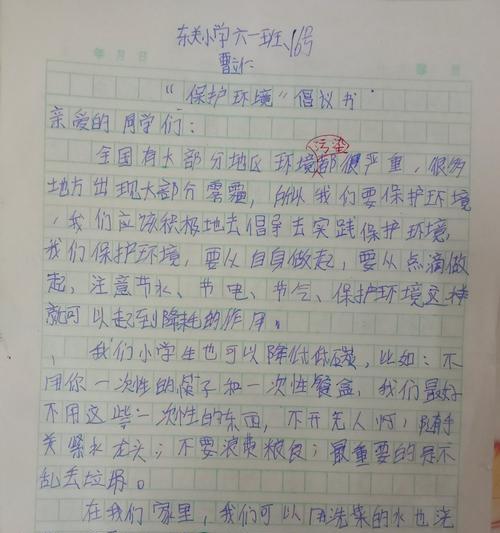 东关小学六一班、16号
曹
年 月 日
"保护环境"倡议书
亲爱的同学们:
全国有大部分地区环境污染都很严重,很多
地方出现大部分雾霾,所以我们要保护环境
,我们应该积极地去倡导去实践保护环境,
我们保护环境,要从自身做起,要从点滴做
起,注意节水、节电、节气、保护环境这样
就可以起到降耗的作用。
我们小学生也可以降低低碳,比如:不
用你一次性的筷子和一次性餐盒,我们最好
不用这些一次性的东西,不开无人灯,随手
关紧水龙头;不要浪费粮食;最重要的是不
乱丢垃圾。
在我们家里,我们可以用洗菜的水也浇